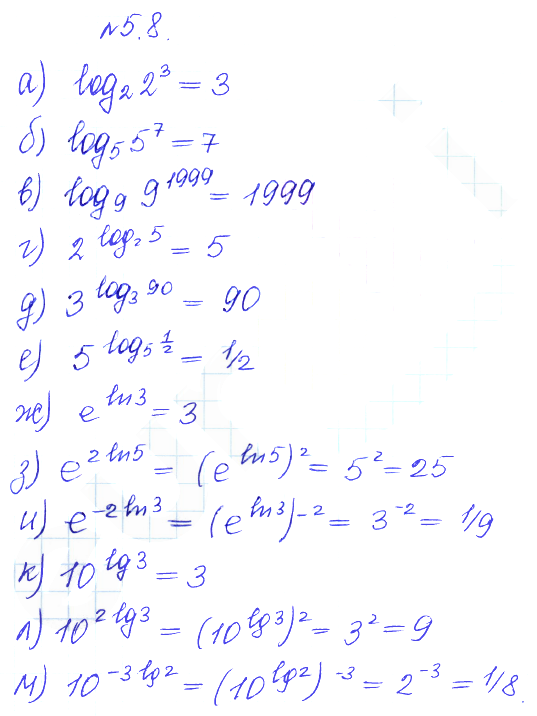 №5.8.
а) log₂ 2³ = 3
б) log₅ 5⁷ = 7
в) log₉ 9¹⁹⁹⁹ = 1999
г) 2^(log₂ 5) = 5
д) 3^(log₃ 90) = 90
е) 5^(log₅ 1/2) = 1/2
ж) e^(ln 3) = 3
з) e^(2 ln 5) = (e^(ln 5))² = 5² = 25
и) e^(-2 ln 3) = (e^(ln 3))⁻² = 3⁻² = 1/9
к) 10^(lg 3) = 3
л) 10^(2 lg 3) = (10^(lg 3))² = 3² = 9
м) 10^(-3 lg 2) = (10^(lg 2))⁻³ = 2⁻³ = 1/8.